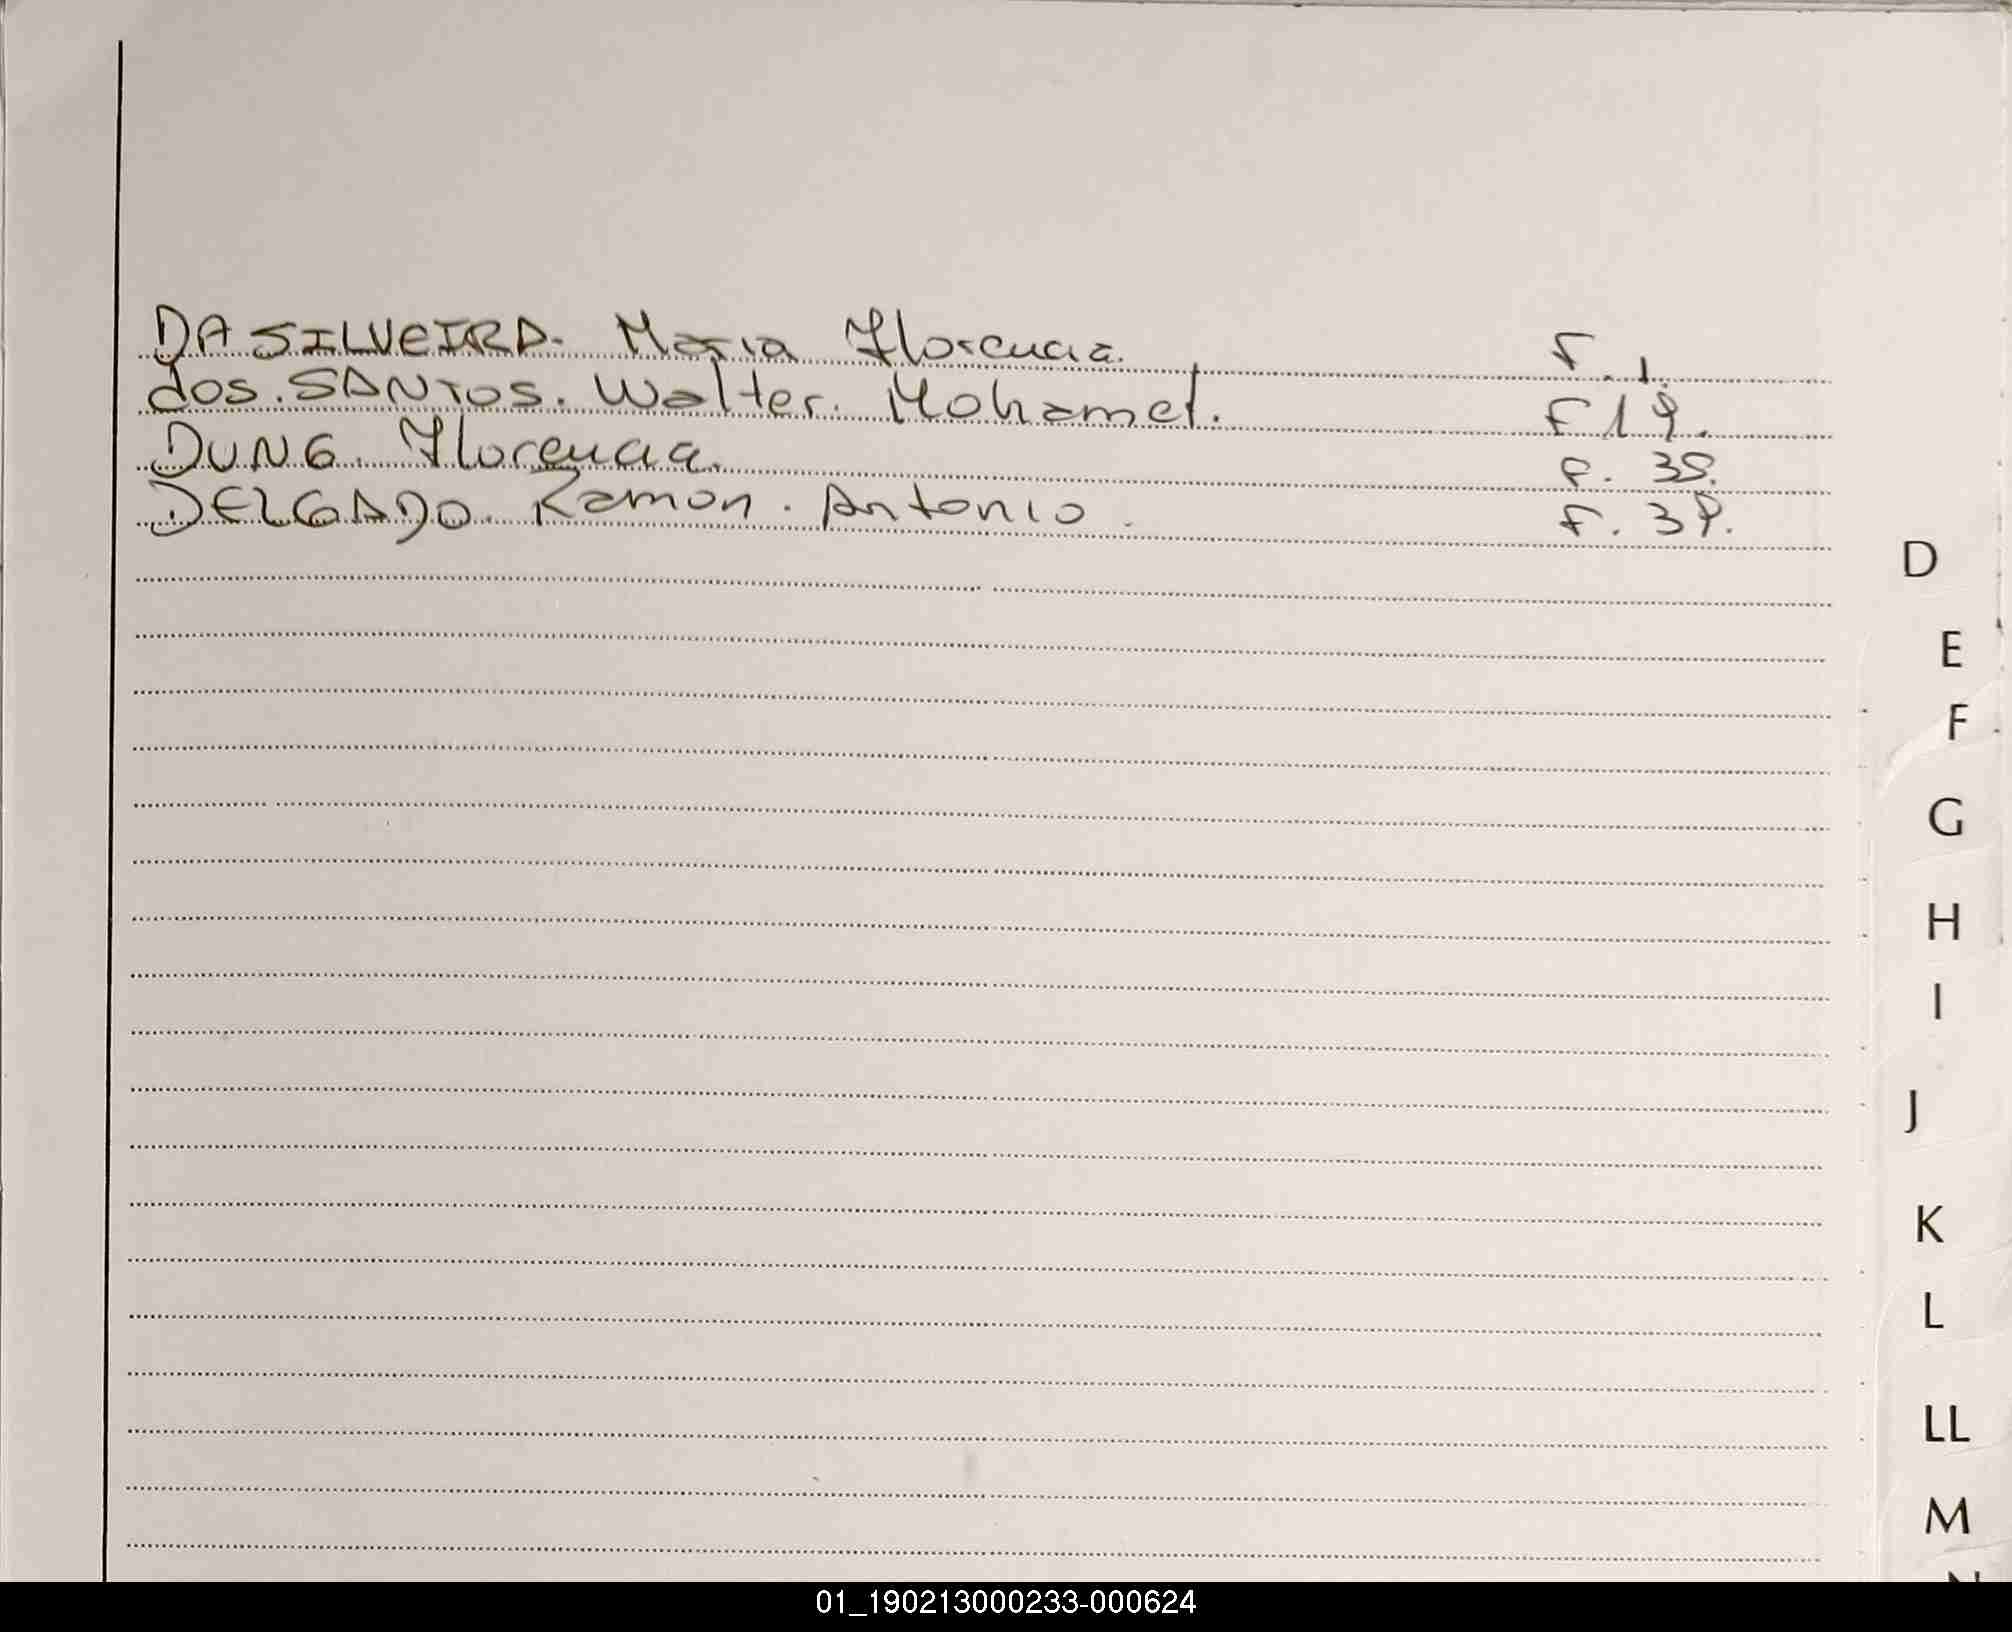 DA SILVEIRA. Maria Florencia. F. 1.
dos. SANTOS. Walter. Mohamed. F 19.
DUNG. Florencia. F. 38.
DELGADO. Ramon. Antonio. F. 39.
D
E
F
G
H
I
J
K
L
LL
M
01_190213000233-000624